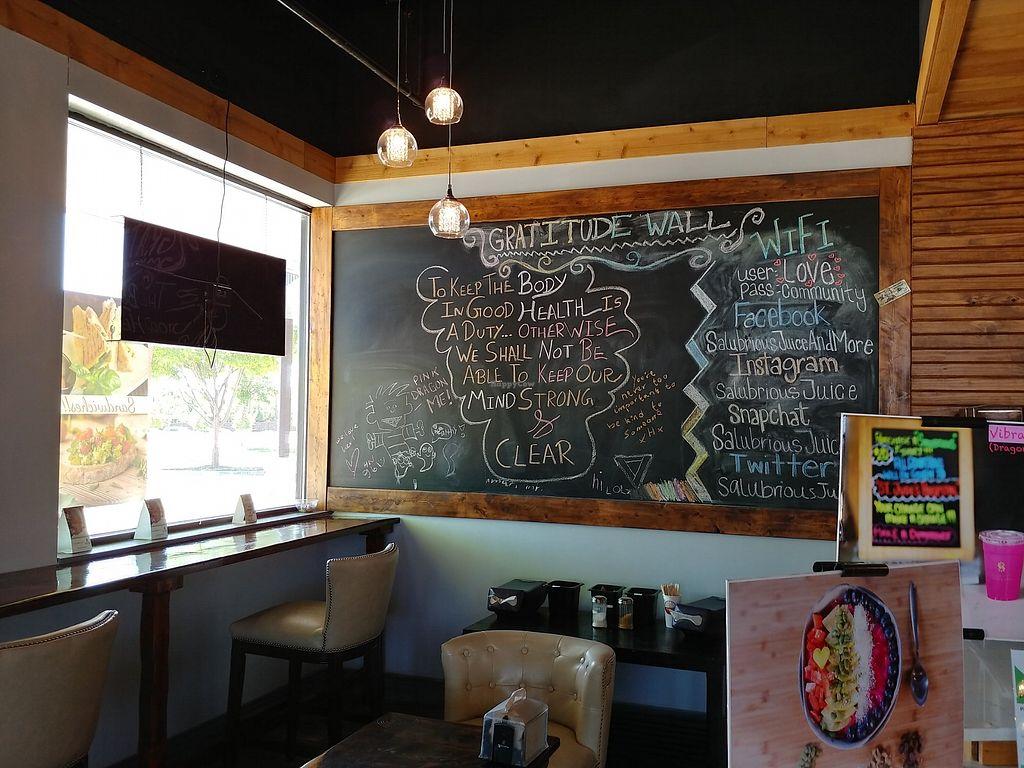 GRATITUDE WALL
TO KEEP THE BODY
IN GOOD HEALTH IS
A DUTY... OTHERWISE
WE SHALL NOT BE
ABLE TO KEEP OUR
MIND STRONG
&
CLEAR
PINK
DRAGON
ME!
you're
never too
important to
be kind to
someone
hi LOL
WIFI
user: Love
pass: community
Facebook
SalubriousJuiceAndMore
Instagram
Salubrious Juice
Snapchat
Salubrious Juic
Twitter
Salubrious Ju
Sandwiches!
HappyCow
Vibra
(Dragon